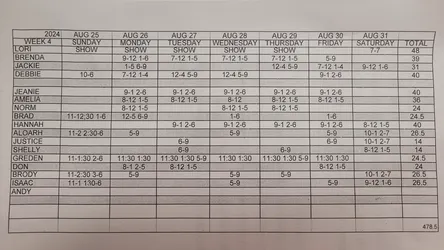 2024 AUG 25 AUG 26 AUG 27 AUG 28 AUG 29 AUG 30 AUG 31
WEEK 4 SUNDAY MONDAY TUESDAY WEDNESDAY THURSDAY FRIDAY SATURDAY TOTAL
LORI SHOW SHOW SHOW SHOW SHOW SHOW 7-7 48
BRENDA 9-12 1-6 7-12 1-5 7-12 1-5 7-12 1-5 5-9 39
JACKIE 1-5 6-9 12-4 5-9 7-12 1-4 9-12 1-6 31
DEBBIE 10-6 7-12 1-4 12-4 5-9 12-4 5-9 9-1 2-6 40
JEANIE 9-1 2-6 9-1 2-6 9-1 2-6 9-1 2-6 9-1 2-6 40
AMELIA 8-12 1-5 8-12 1-5 8-12 8-12 1-5 8-12 1-5 36
NORM 8-12 1-5 8-12 1-5 8-12 1-5 24
BRAD 11-12;30 1-6 12-5 6-9 1-6 1-6 24.5
HANNAH 9-1 2-6 9-1 2-6 9-1 2-6 9-1 2-6 8-12 1-5 40
ALOARH 11-2 2:30-6 5-9 5-9 5-9 10-1 2-7 26.5
JUSTICE 6-9 6-9 10-1 2-7 14
SHELLY 6-9 6-9 8-12 1-5 14
GREDEN 11-1:30 2-6 11:30 1:30 11:30 1:30 5-9 11:30 1:30 11:30 1:30 5-9 11:30 1:30 24.5
DON 8-1 2-5 8-12 1-5 8-12 1-5 24
BRODY 11-2:30 3-6 5-9 5-9 5-9 10-1 2-7 26.5
ISAAC 11-1 130-6 5-9 5-9 9-12 1-6 26.5
ANDY
478.5